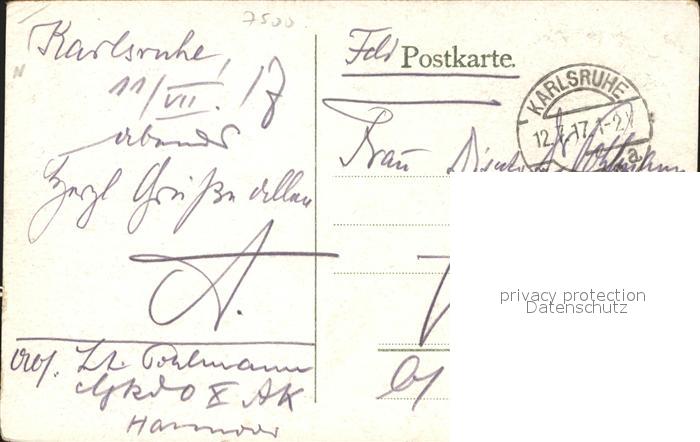 7500
Karlsruhe,
11/VII. 17
abends
Herzl Grüße allen
A.
Lt. Pohlmann
X AK
Hannover
Feld Postkarte.
KARLSRUHE
12.7.17.1-2
a
Frau
privacy protection
Datenschutz